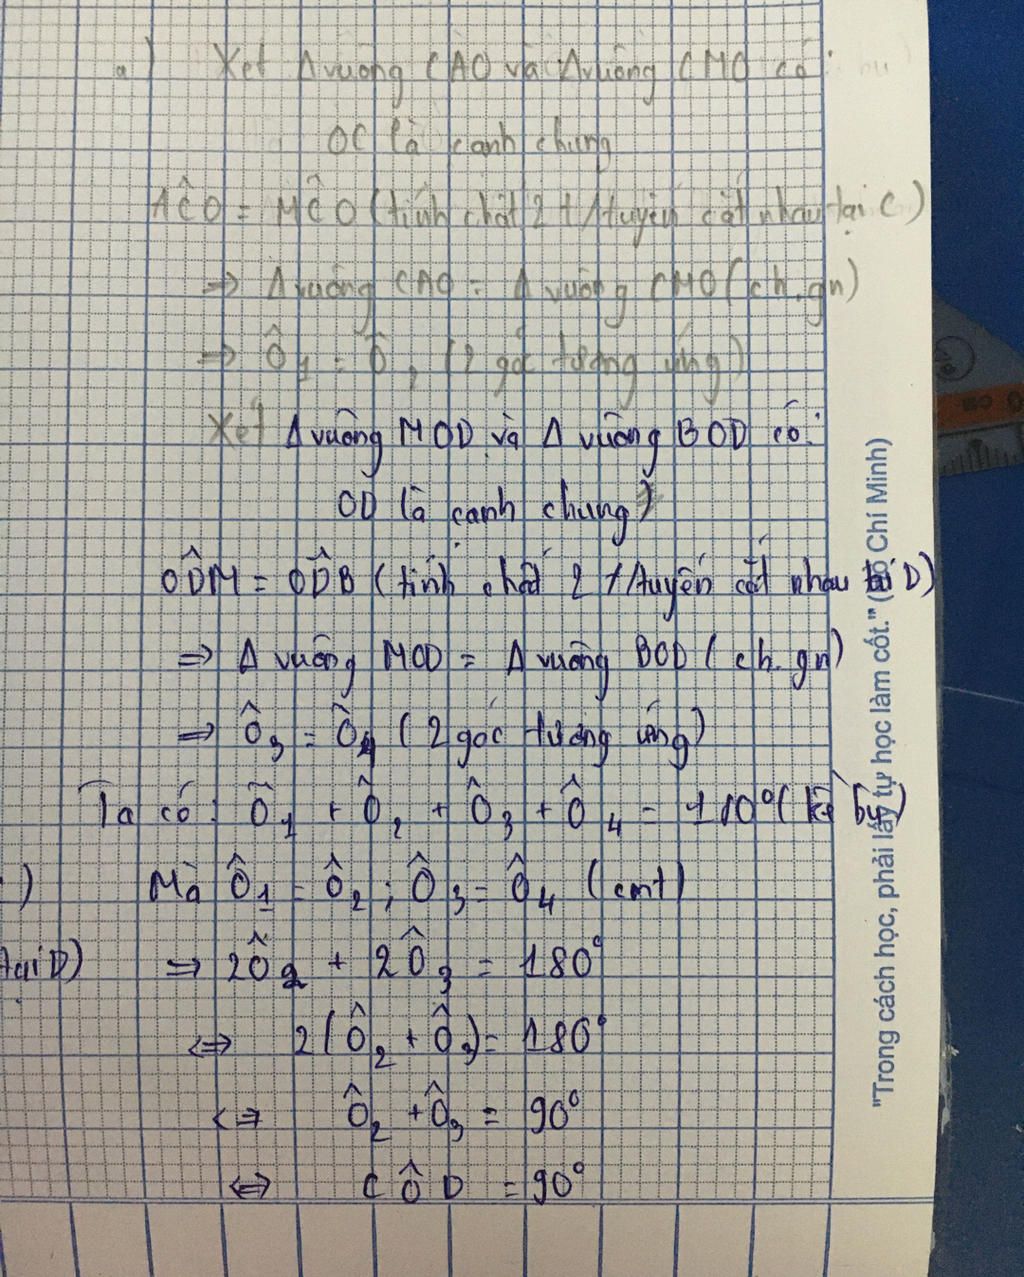 a) Xét Δvuông CAO và Δvuông CMO có:
OC là cạnh chung
AĈO = MĈO (tính chất 2 t/tuyến cắt nhau tại C)
⇒ Δvuông CAO = Δ vuông CMO (ch.gn)
⇒ Ô1 = Ô2 (2 góc tương ứng)
Xét Δvuông MOD và Δ vuông BOD có:
OD là cạnh chung
OD̂M = OD̂B (tính chất 2 t/tuyến cắt nhau tại D)
⇒ Δ vuông MOD = Δ vuông BOD (ch.gn)
⇒ Ô3 = Ô4 (2 góc tương ứng)
Ta có: Ô1 + Ô2 + Ô3 + Ô4 = 180° (kề bù)
) Mà Ô1 = Ô2 ; Ô3 = Ô4 (cmt)
tại D) ⇒ 2Ô2 + 2Ô3 = 180°
⇔ 2(Ô2 + Ô3) = 180°
⇔ Ô2 + Ô3 = 90°
⇔ CÔD = 90°
"Trong cách học, phải lấy tự học làm cốt." (Hồ Chí Minh)